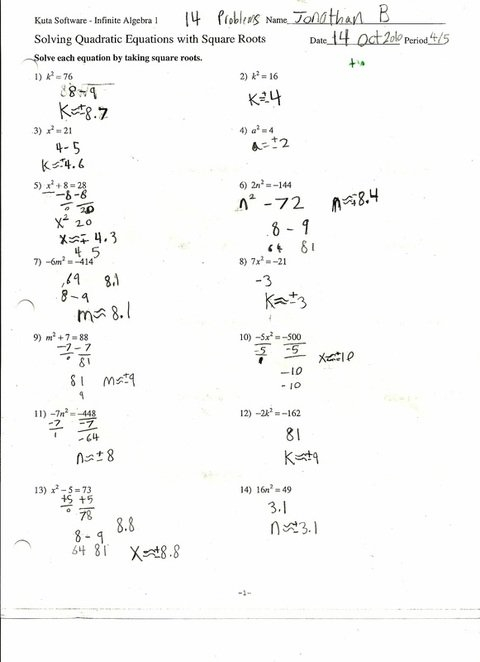 Kuta Software - Infinite Algebra 1 14 Problems Name Jonathan B
Solving Quadratic Equations with Square Roots Date 14 Oct 2010 Period 4/5
Solve each equation by taking square roots.
1) k² = 76
8 - 9
K≈±8.7
2) k² = 16
K=±4
3) x² = 21
4-5
K≈±4.6
4) a² = 4
a=±2
5) x² + 8 = 28
-8 -8
0 20
x² 20
x≈± 4.3
4 5
6) 2n² = -144
n² -72 n≈±8.4
8 - 9
64 81
7) -6m² = -414
.69 8.1
8-9
m≈ 8.1
8) 7x² = -21
-3
K≈±3
9) m² + 7 = 88
-7 -7
0 81
81 m≈±9
9
10) -5x² = -500
-5 -5 x≈±10
-10
-10
11) -7n² = -448
-7 -7
1 -64
n≈±8
12) -2k² = -162
81
K≈±9
13) x² - 5 = 73
+5 +5
0 78
8.8
8-9
64 81 X≈±8.8
14) 16n² = 49
3.1
n≈±3.1
-1-